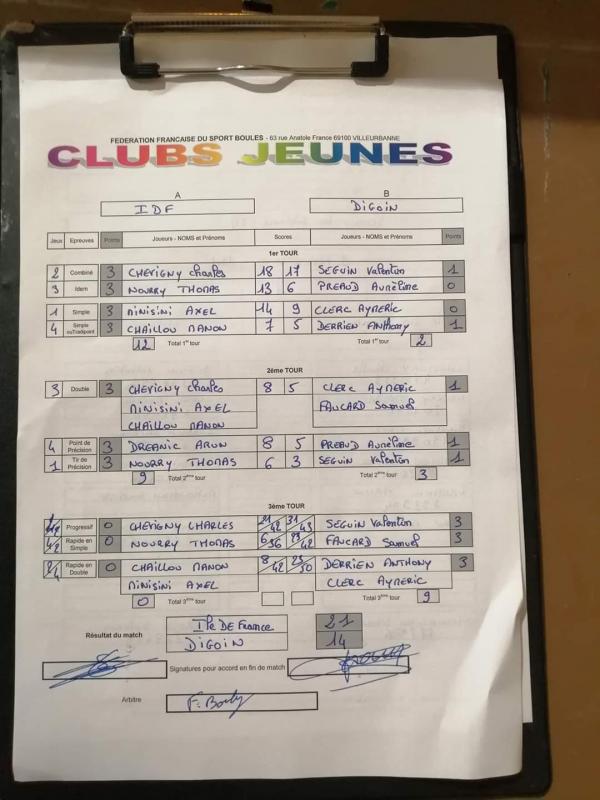 FEDERATION FRANCAISE DU SPORT BOULES - 63 rue Anatole France 69100 VILLEURBANNE
CLUBS JEUNES
A B
IDF DIGOIN
Jeux Epreuves Points Joueurs - NOMS et Prénoms Scores Joueurs - NOMS et Prénoms Points
1er TOUR
2 Combiné 3 CHEVIGNY Charles 18 17 SEGUIN Valentin 1
3 Idem 3 NOURRY THOMAS 13 6 PREAUD Aurélime 0
1 Simple 3 MINISINI AXEL 14 9 CLERC AYMERIC 0
4 Simple 3 CHAILLOU MANON 7 5 DERRIEN Anthony 1
12 Total 1er tour Total 1er tour 2
2ème TOUR
3 Double 3 CHEVIGNY Charles 8 5 CLERC AYMERIC 1
MINISINI AXEL FAUCARD Samuel
CHAILLOU MANON
4 Point de Précision 3 DREANIC ARUN 8 5 PREAUD Aurélime 1
1 Tir de Précision 3 NOURRY THOMAS 6 3 SEGUIN Valentin 1
9 Total 2ème tour Total 2ème tour 3
3ème TOUR
Progressif 0 CHEVIGNY CHARLES 21/42 31/43 SEGUIN Valentin 3
Rapide en Simple 0 NOURRY THOMAS 6/36 23/42 FAUCARD Samuel 3
Rapide en Double 0 CHAILLOU MANON 8/42 23/50 DERRIEN ANTHONY 3
MINISINI AXEL CLERC AYMERIC
0 Total 3ème tour Total 3ème tour 9
Résultat du match
Ile DE France 21
DIGOIN 14
Signatures pour accord en fin de match
Arbitre